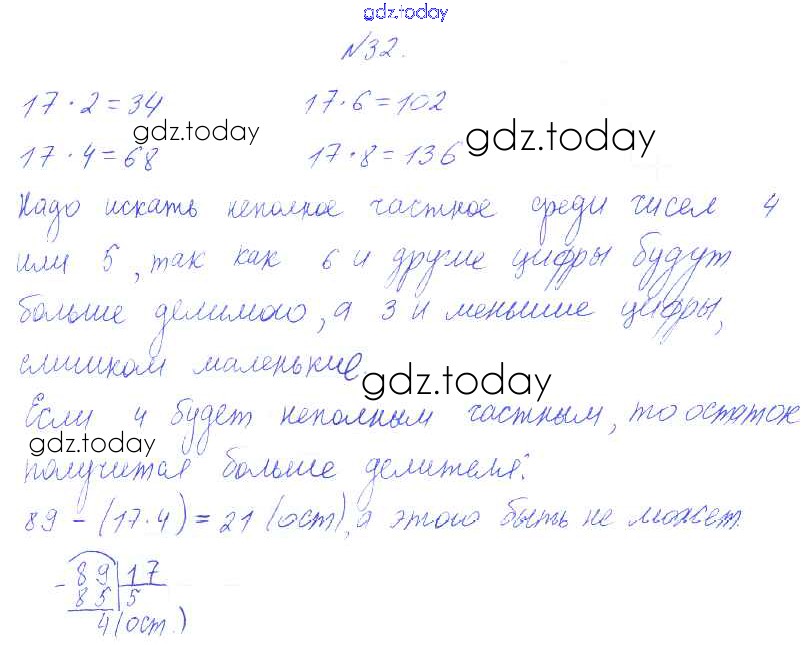 gdz.today
№32.
17·2=34 17·6=102
gdz.today gdz.today
17·4=68 17·8=136
Надо искать неполное частное среди чисел 4
или 5, так как 6 и другие цифры будут
больше делимого, а 3 и меньшие цифры,
слишком маленькие
gdz.today
Если 4 будет неполным частным, то остаток
gdz.today
получится больше делителя:
89 - (17·4) = 21 (ост), а этого быть не может.
- 89 | 17
85 | 5
4 (ост.)